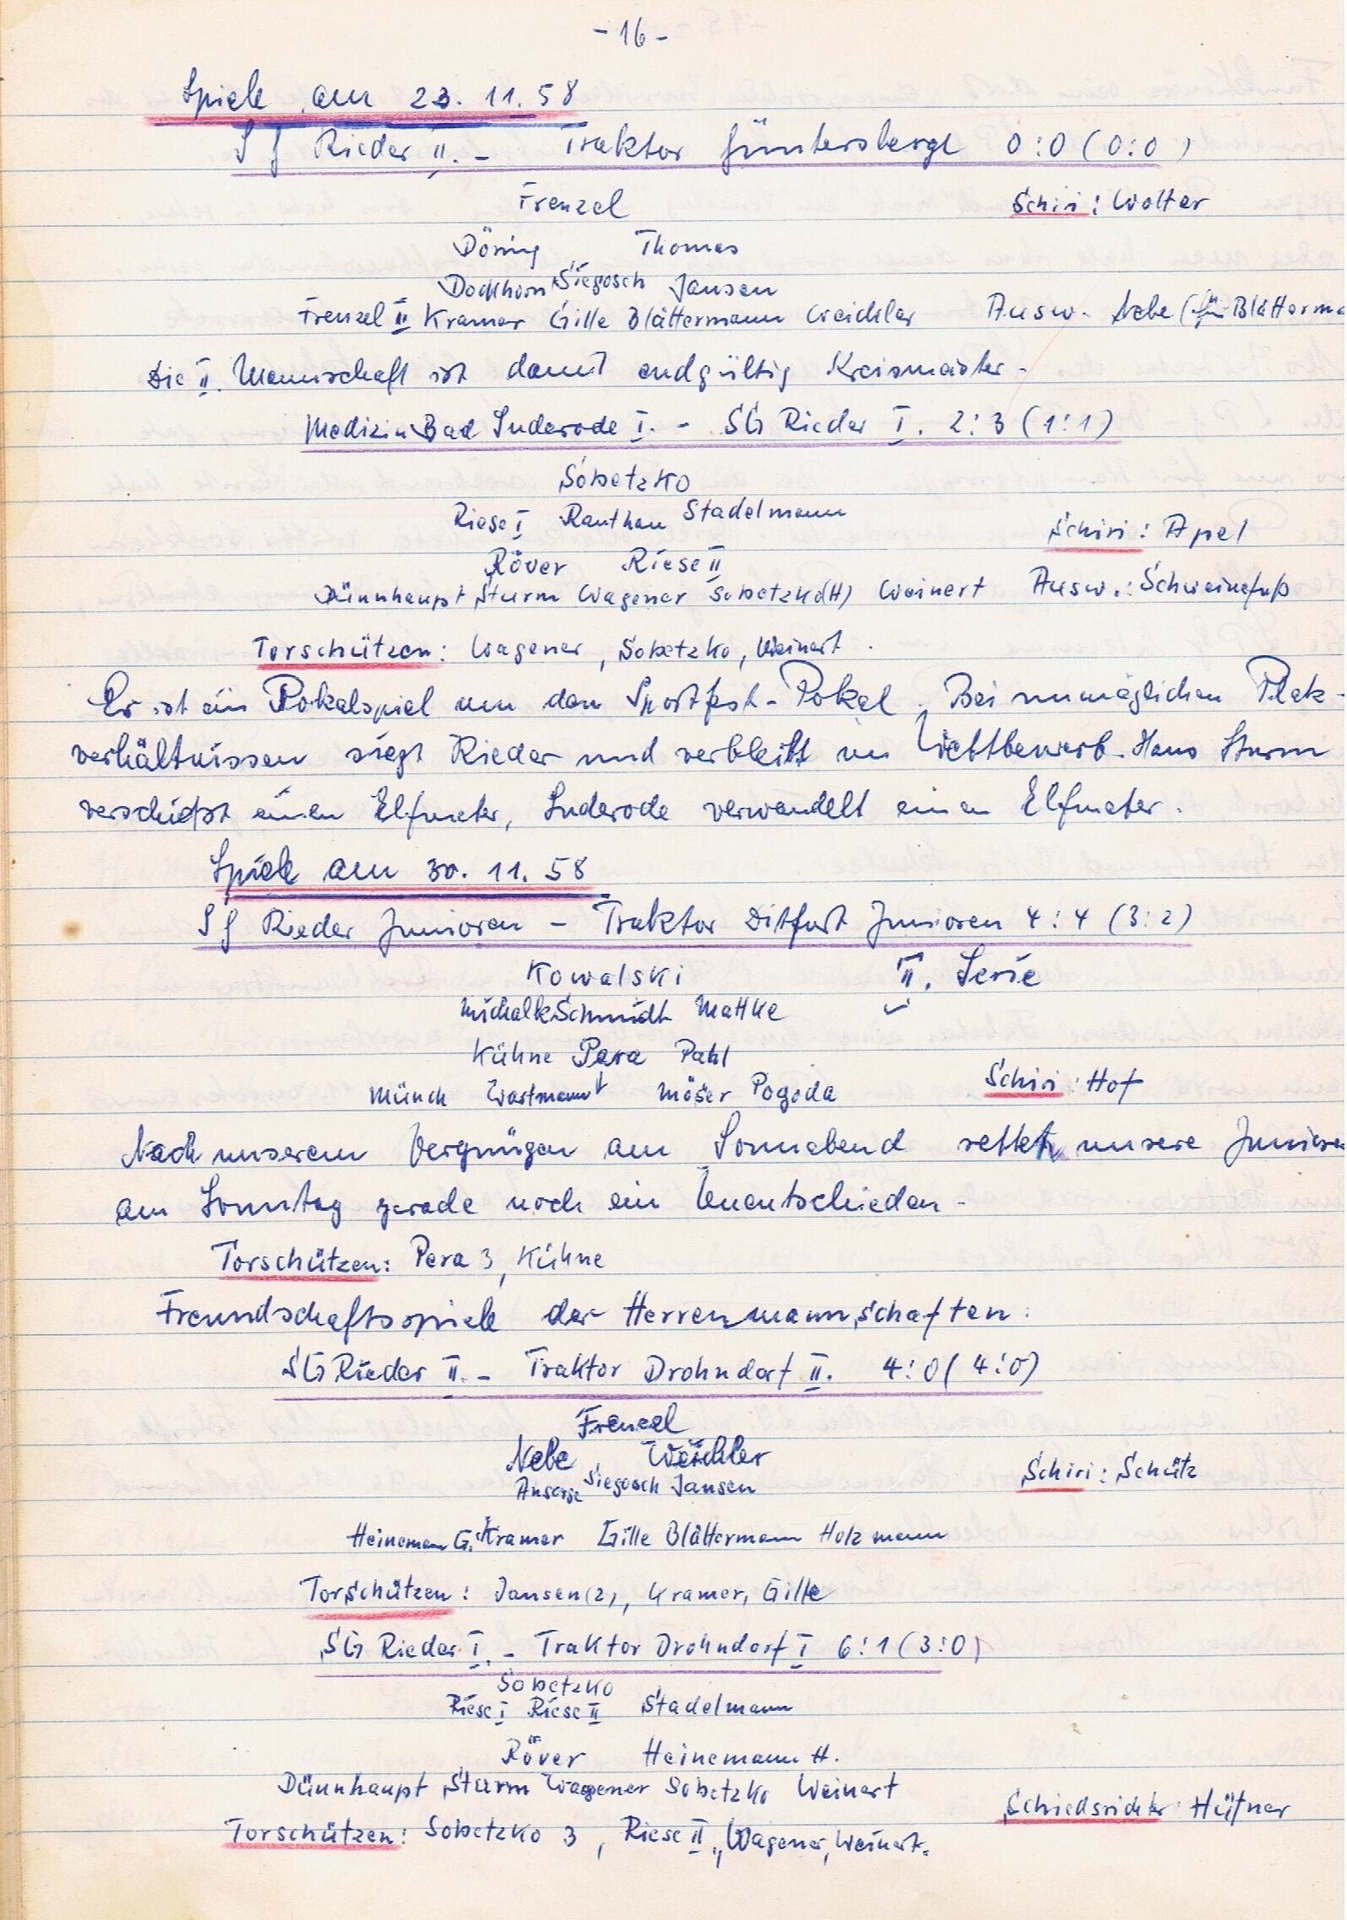 - 16 -
Spiele am 23. 11. 58
SG Rieder II. - Traktor Güntersberge 0:0 (0:0)
Frenzel Schiri: Wolter
Döring Thomas
Dockhorn Siegosch Jansen
Frenzel II Kramer Gille Blättermann Weichler Ausw. Nebe (für Blätterma
Die II. Mannschaft ist damit endgültig Kreismeister.
Medizin Bad Suderode I. - SG Rieder I. 2:3 (1:1)
Sobetzko
Riese I Rauthan Stadelmann
Schiri: Apel
Röver Riese II
Dünnhaupt Sturm Wagener Sobetzko(H) Weinert Ausw.: Schweinefuß
Torschützen: Wagener, Sobetzko, Weinert.
Es ist ein Pokalspiel um den Sportfest-Pokal. Bei unmöglichen Platz-
verhältnissen siegt Rieder und verbleibt im Wettbewerb. Hans Sturm
verschießt einen Elfmeter, Suderode verwandelt einen Elfmeter.
Spiele am 30. 11. 58
SG Rieder Junioren - Traktor Ditfurt Junioren 4:4 (3:2)
Kowalski II. Serie
Michalk Schmidt Mattke
Kühne Pera Pahl
Münch Wartmann Möser Pogoda Schiri: Hof
Nach unserem Vergnügen am Sonnabend retten unsere Junioren
am Sonntag gerade noch ein Unentschieden.
Torschützen: Pera 3, Kühne
Freundschaftsspiele der Herrenmannschaften:
SG Rieder II. - Traktor Drohndorf II. 4:0 (4:0)
Frenzel
Nebe Weichler
Ansorge Siegosch Jansen Schiri: Schütz
Heinemann G. Kramer Gille Blättermann Holzmann
Torschützen: Jansen (2), Kramer, Gille
SG Rieder I. - Traktor Drohndorf I 6:1 (3:0)
Sobetzko
Riese I Riese II Stadelmann
Röver Heinemann H.
Dünnhaupt Sturm Wagener Sobetzko Weinert
Schiedsrichter: Hüfner
Torschützen: Sobetzko 3, Riese II, Wagener, Weinert.